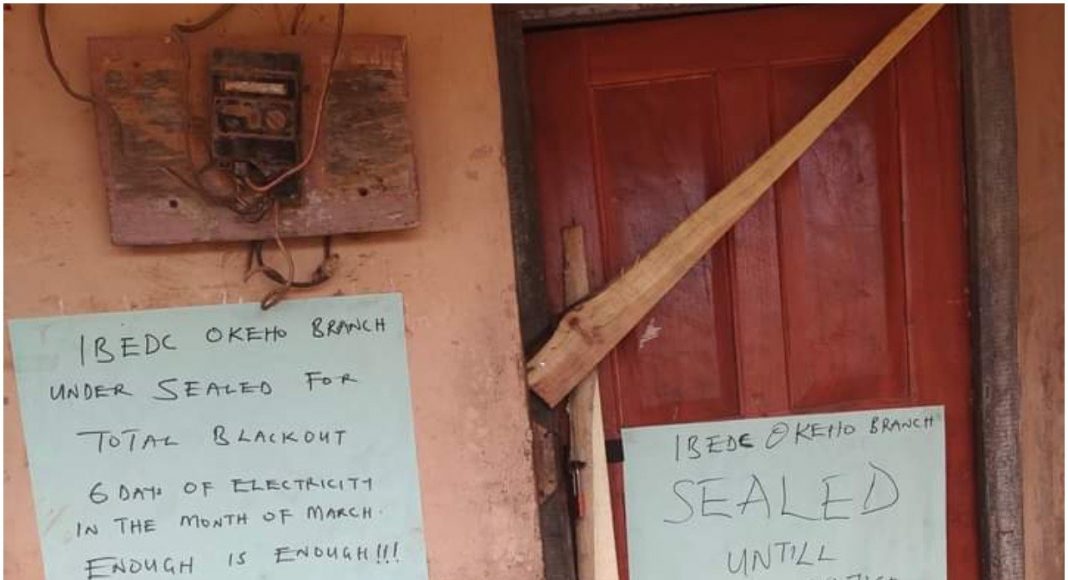 IBEDC OKEHO BRANCH
UNDER SEALED FOR
TOTAL BLACKOUT
6 DAYS OF ELECTRICITY
IN THE MONTH OF MARCH.
ENOUGH IS ENOUGH!!!
IBEDC OKEHO BRANCH
SEALED
UNTILL